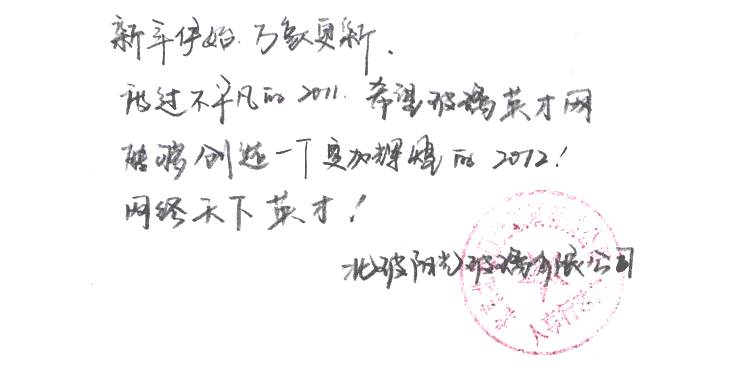 新年伊始.万象更新.
越过不平凡的2011.希望玻璃英才网
能够创造一个更加辉煌的2012!
网络天下英才!
北玻阳光玻璃有限公司